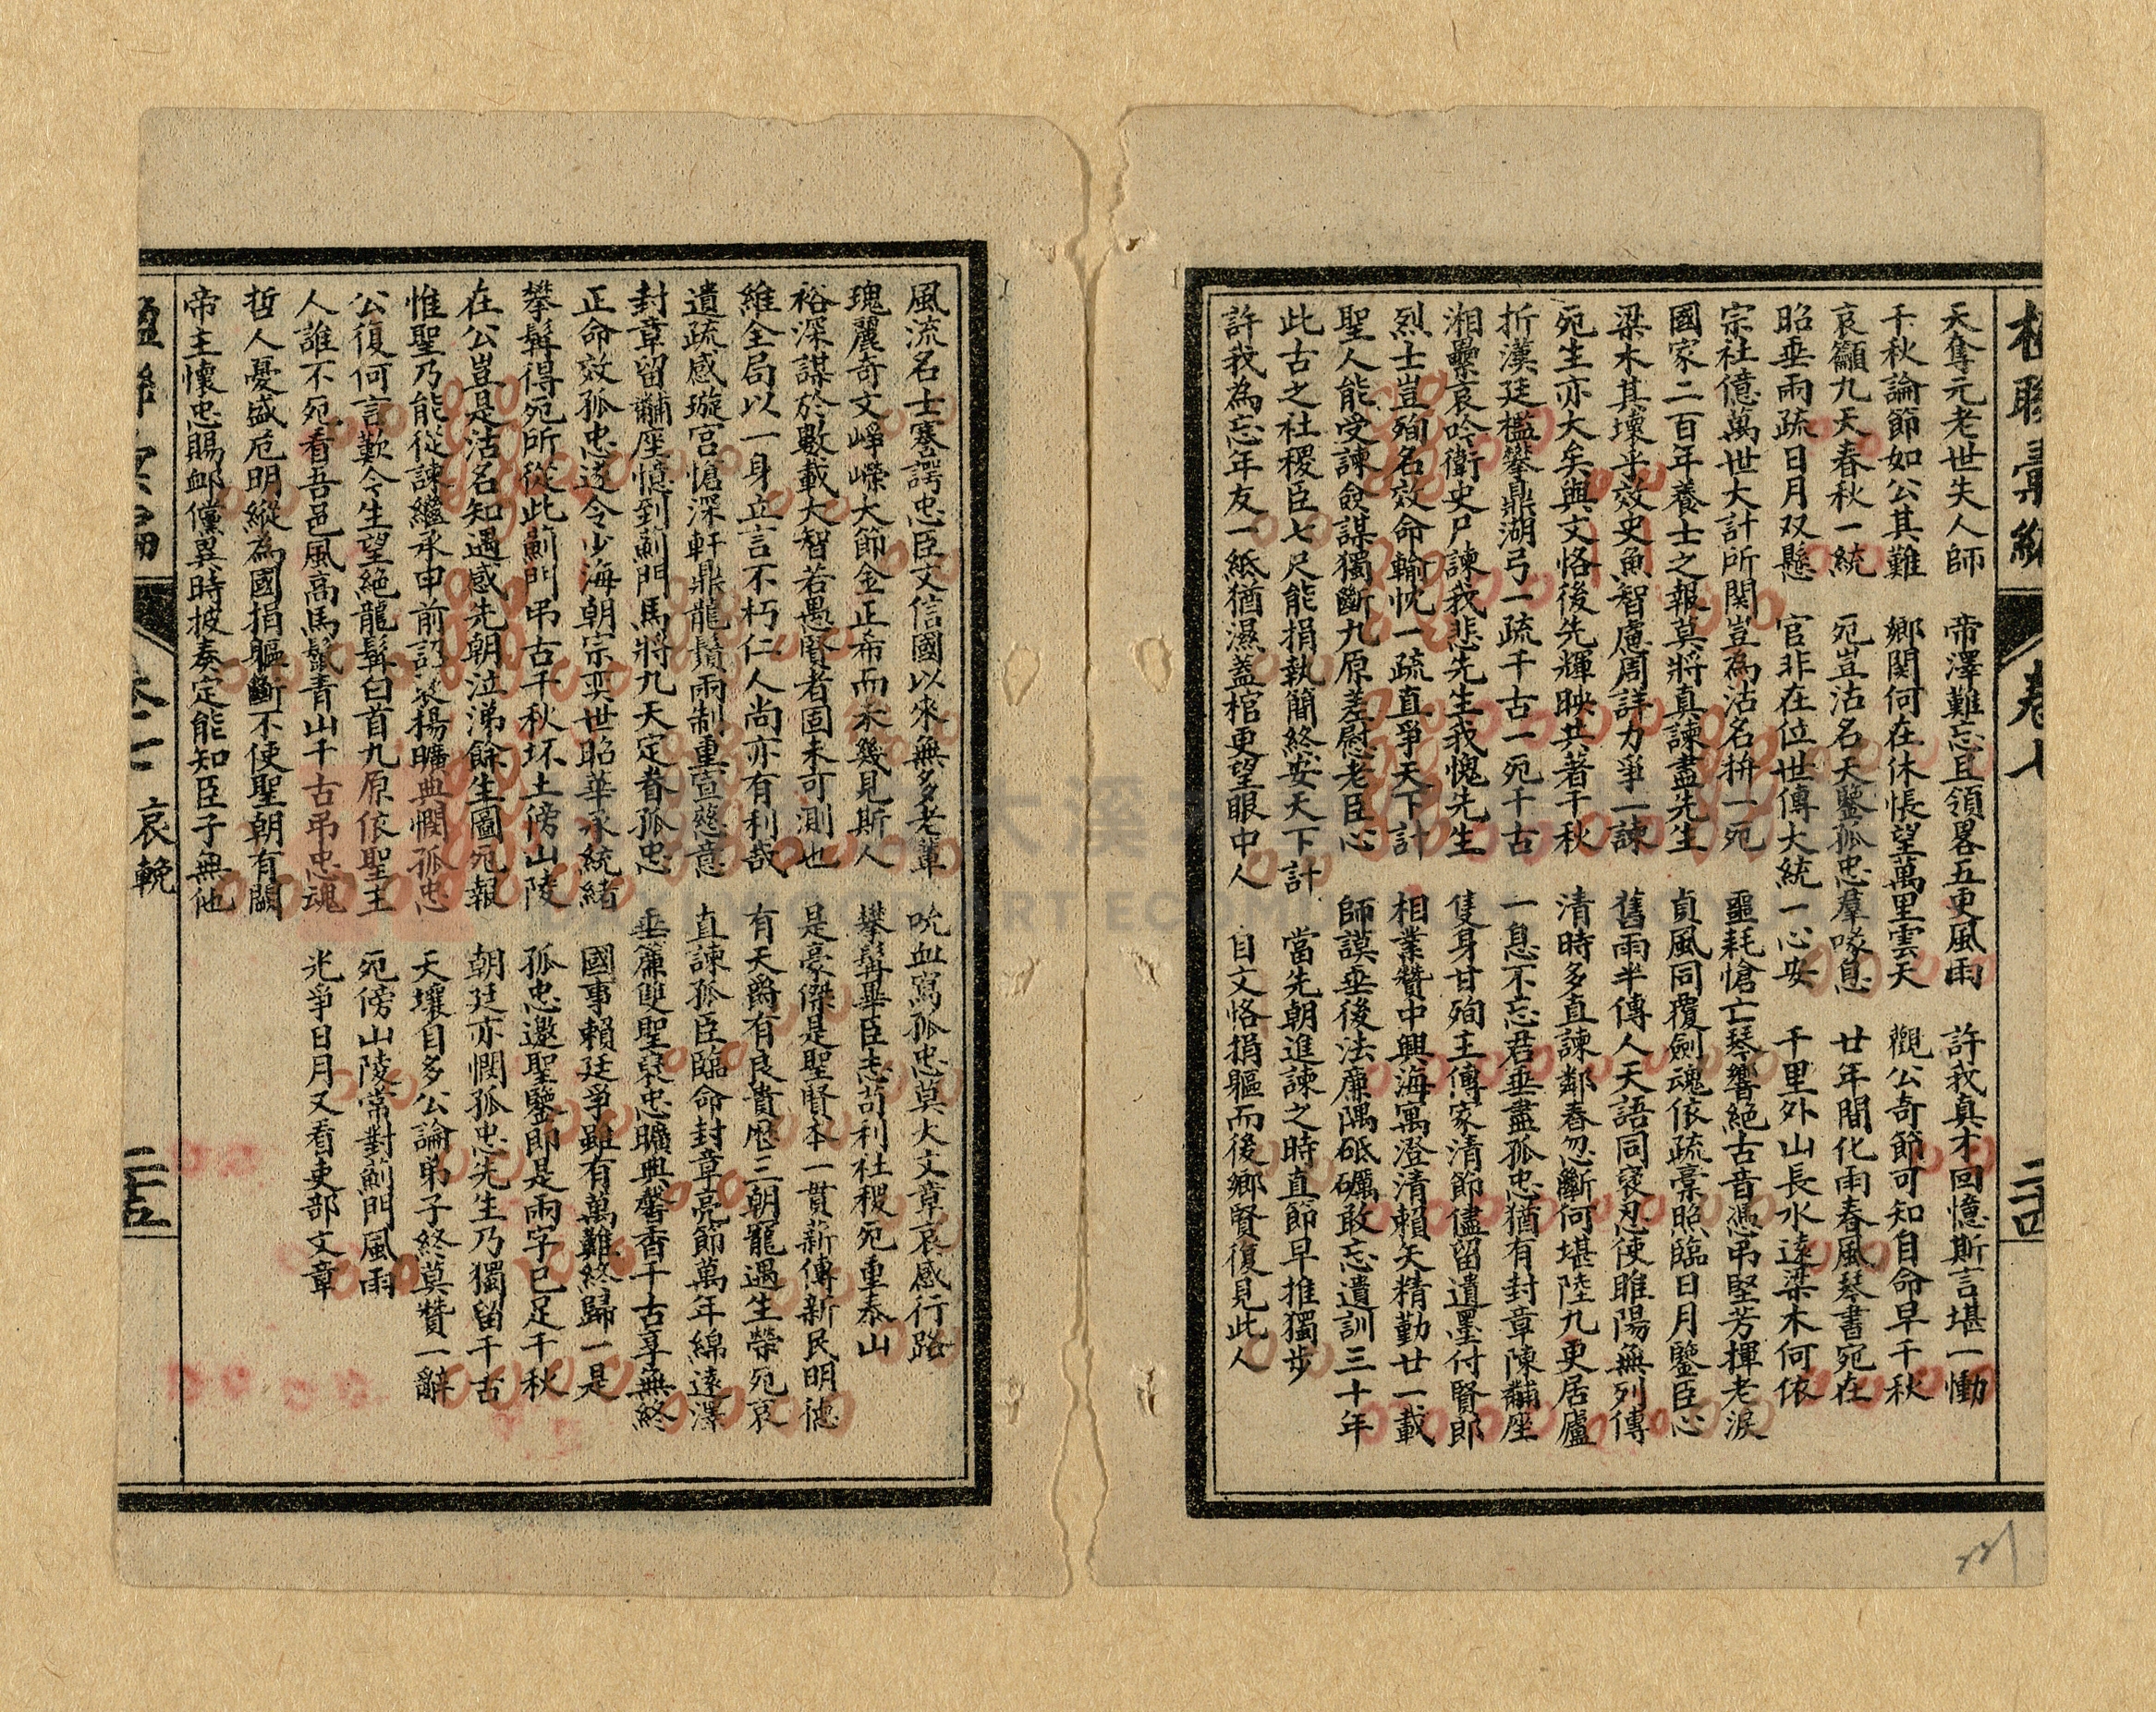 楹聯彙編
卷七
二十四
天奪元老世失人師　帝澤難忘且領畧五更風雨　許我真才回憶斯言堪一慟
千秋論節如公其難　鄉関何在休悵望萬里雲天　觀公奇節可知自命早千秋
哀籲九天春秋一統　宛豈沽名天鑒孤忠羣喙息　廿年間化雨春風琴書宛在
昭垂兩疏日月双懸　官非在位世傳大統一心安　千里外山長水遠梁木何依
宗社億萬世大計所関豈為沽名拚一宛　噩耗愴亡琴響絕古音憑弔堅芳揮老淚
國家二百年養士之報莫將真諫盡先生　貞風同覆劍魂依疏藁照臨日月鑒臣心
梁木其壞乎效史魚智慮周詳力爭一諫　舊雨半傳人天語同褒忍使睢陽無列傳
宛生亦大矣與文恪後先輝映共著千秋　清時多直諫鄰春忽斷何堪陸九更居廬
折漢廷檻攀鼎湖弓一疏千古一宛千古　一息不忘君垂盡孤忠猶有封章陳黼座
湘纍哀吟衛史尸諫我悲先生我愧先生　隻身甘殉主傳家清節儘留遺墨付賢郎
烈士豈殉名效命輸忱一疏直爭天下計　相業贊中興海寓澄清賴矢精勤廿一載
聖人能受諫僉謀獨斷九原差慰老臣心　師謨垂後法廉隅砥礪敢忘遺訓三十年
此古之社稷臣七尺能捐執簡終安天下計　當先朝進諫之時直節早推獨步
許我為忘年友一紙猶濕蓋棺更望眼中人　自文恪捐軀而後鄉賢復見此人
風流名士蹇諤忠臣文信國以來無多老輩　吮血寫孤忠莫大文章哀感行路
瑰麗奇文崢嶸大節金正希而未幾見斯人　攀髯畢臣志苟利社稷宛重泰山
裕深謀於數載大智若愚賢者固未可測也　是豪傑是聖賢本一貫薪傳新民明德
維全局以一身立言不朽仁人尚亦有利哉　有天爵有良貴歷三朝寵遇生榮宛哀
遺疏感璇宮愴深軒鼎龍鬚兩制重宣慈意　直諫孤臣臨命封章亮節萬年綿遠澤
封章留黼座憶到薊門馬將九天定眷孤忠　垂簾雙聖褒忠曠典馨香千古享無終
正命效孤忠遂令少海朝宗奕世昭華承統緒　國事賴廷爭雖有萬難終歸一是
攀髯得宛所從此薊門弔古千秋坏土傍山陵　孤忠邀聖鑒即是兩字已足千秋
在公豈是沽名知遇感先朝泣涕餘生圖宛報　朝廷亦憫孤忠先生乃獨留千古
惟聖乃能從諫繼承申前詔褒揚曠典憫孤忠　天壤自多公論弟子終莫贊一辭
公復何言歎今生望絕龍髯白首九原依聖主　宛傍山陵常對薊門風雨
人誰不宛看吾邑風高馬鬣青山千古弔忠魂　光爭日月又看吏部文章
哲人憂盛危明縱為國捐軀斷不使聖朝有闕
帝主懷忠賜卹儻異時披奏定能知臣子無他
哀輓
二十五